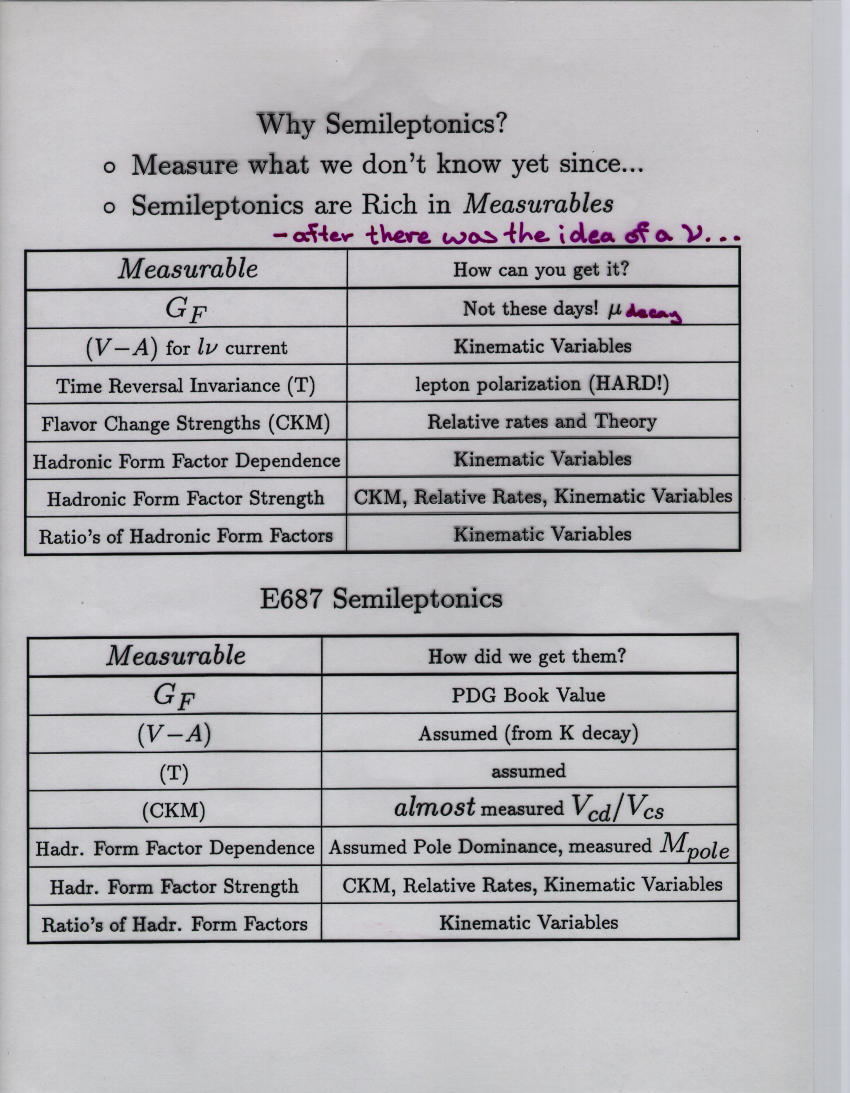 Why Semileptonics?
o Measure what we don't know yet since...
o Semileptonics are Rich in Measurables
- after there was the idea of a ν...
Measurable How can you get it?
G_F Not these days! μ decay
(V−A) for lν current Kinematic Variables
Time Reversal Invariance (T) lepton polarization (HARD!)
Flavor Change Strengths (CKM) Relative rates and Theory
Hadronic Form Factor Dependence Kinematic Variables
Hadronic Form Factor Strength CKM, Relative Rates, Kinematic Variables
Ratio's of Hadronic Form Factors Kinematic Variables
E687 Semileptonics
Measurable How did we get them?
G_F PDG Book Value
(V−A) Assumed (from K decay)
(T) assumed
(CKM) almost measured V_cd/V_cs
Hadr. Form Factor Dependence Assumed Pole Dominance, measured M_pole
Hadr. Form Factor Strength CKM, Relative Rates, Kinematic Variables
Ratio's of Hadr. Form Factors Kinematic Variables